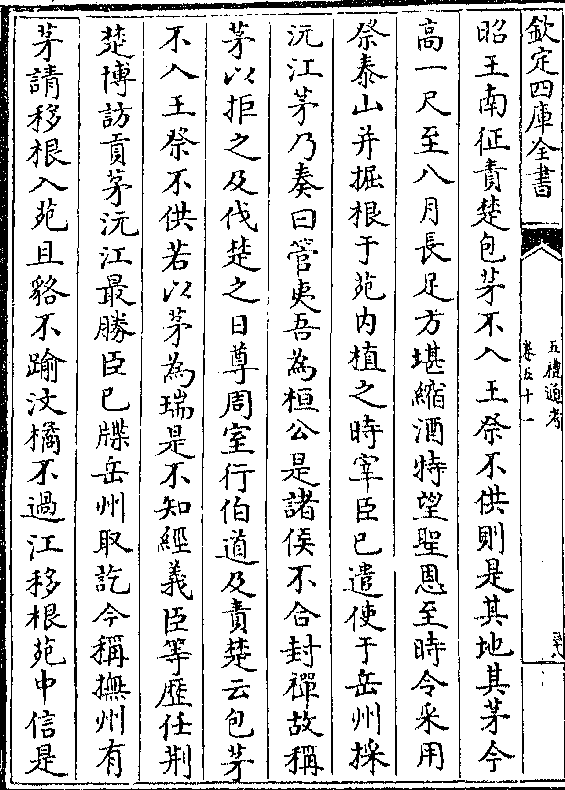 欽定四庫全書
五禮通考
卷五十一
昭王南征責楚包茅不入 王祭不供則是其地其茅今
高一尺至八月長足方堪縮酒特望聖恩至時令采用
祭泰山并掘根于苑内植之時宰臣已遣使于岳州採
沅江茅乃奏曰管夷吾為桓公是諸侯不合封禪故稱
茅以拒之及伐楚之日尊周室行伯道及責楚云包茅
不入王祭不供若以茅為瑞是不知經義臣等歷任荆
楚博訪貢茅沅江最勝臣已牒岳州取訖今稱撫州有
茅請移根入苑且貉不踰汶橘不過江移根苑中信是